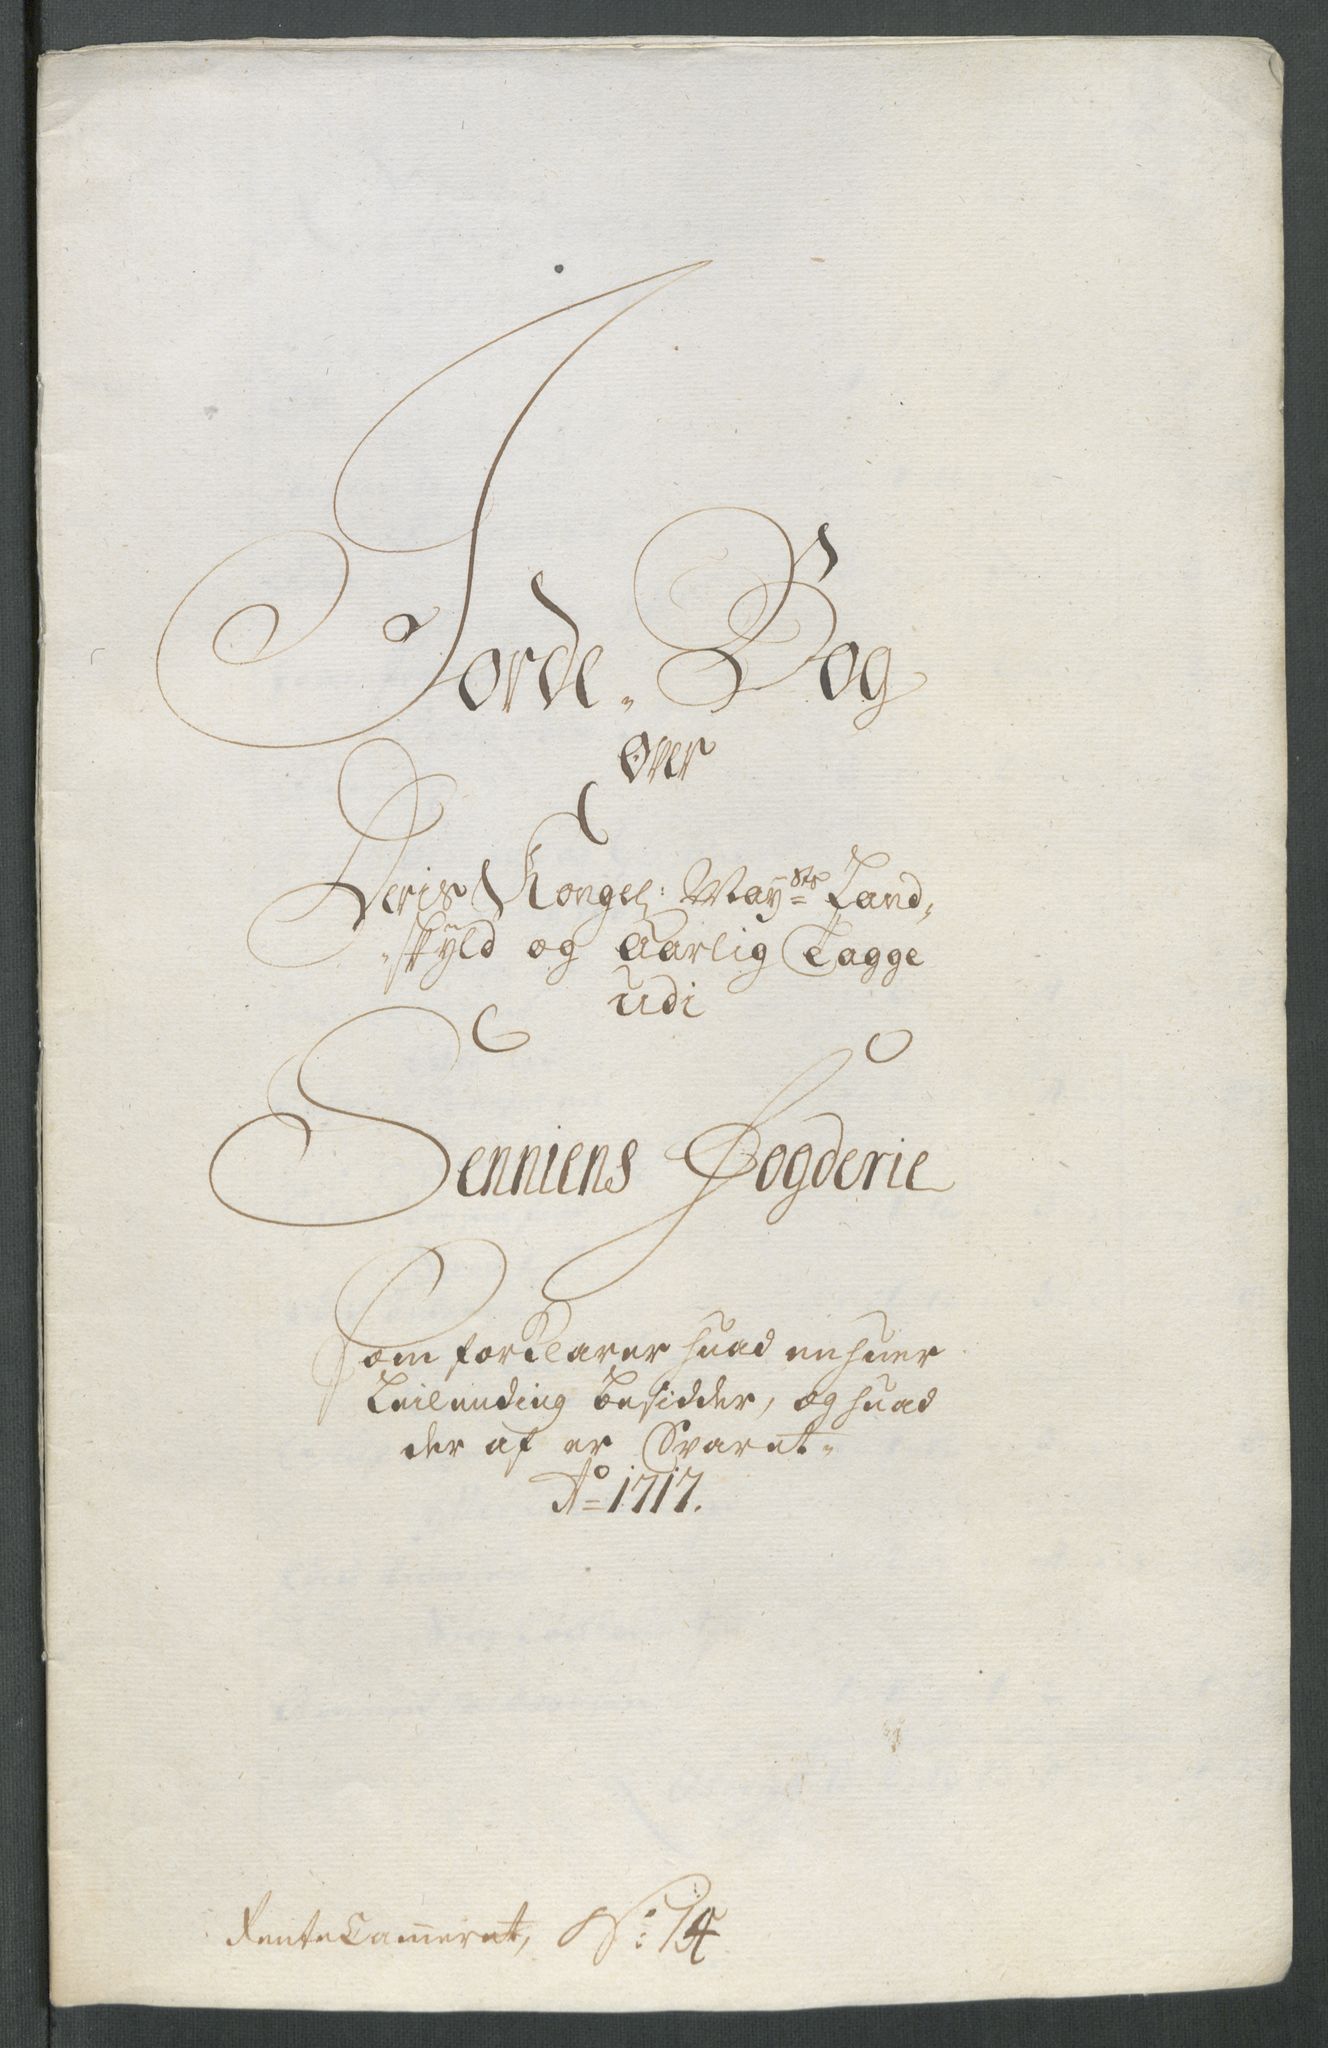 Jorde-Bog
Over
Deris Kongel: May:sts Land-
-skyld og Aarlig Tagge
udi
Senniens Fogderie
Som forklarer huad en huer
Leilending besidder, og huad
der af er Svaret-
Ao 1717.
Rente Cammeret, No: 14